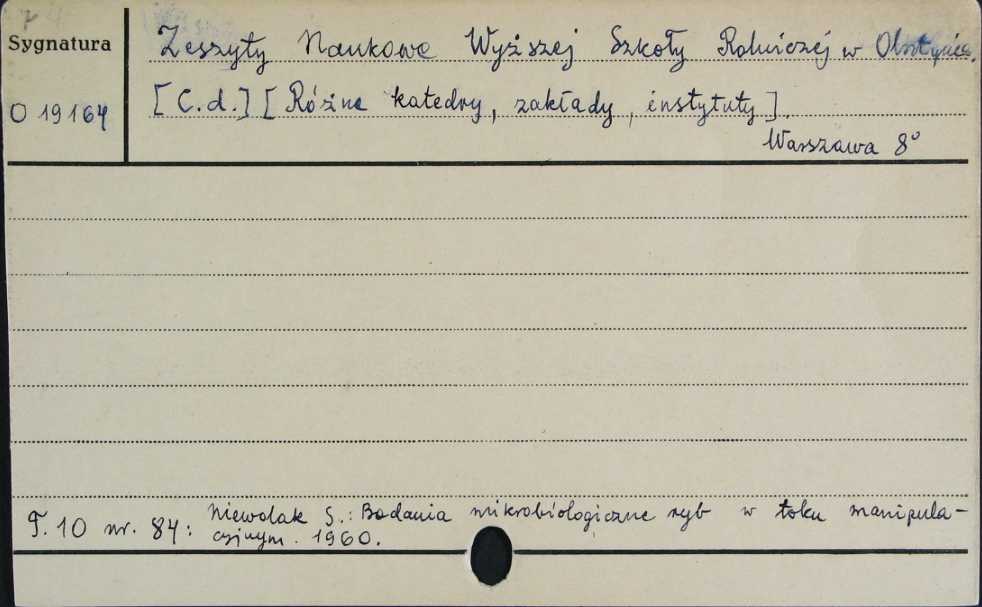 Sygnatura
O 19164
Zeszyty Naukowe Wyższej Szkoły Rolniczej w Olsztynie.
[C.d.] [Różne katedry, zakłady, instytuty].
Warszawa 8°
T. 10 nr. 84: Niewolak S.: Badania mikrobiologiczne ryb w toku manipula-
cyjnym. 1960.